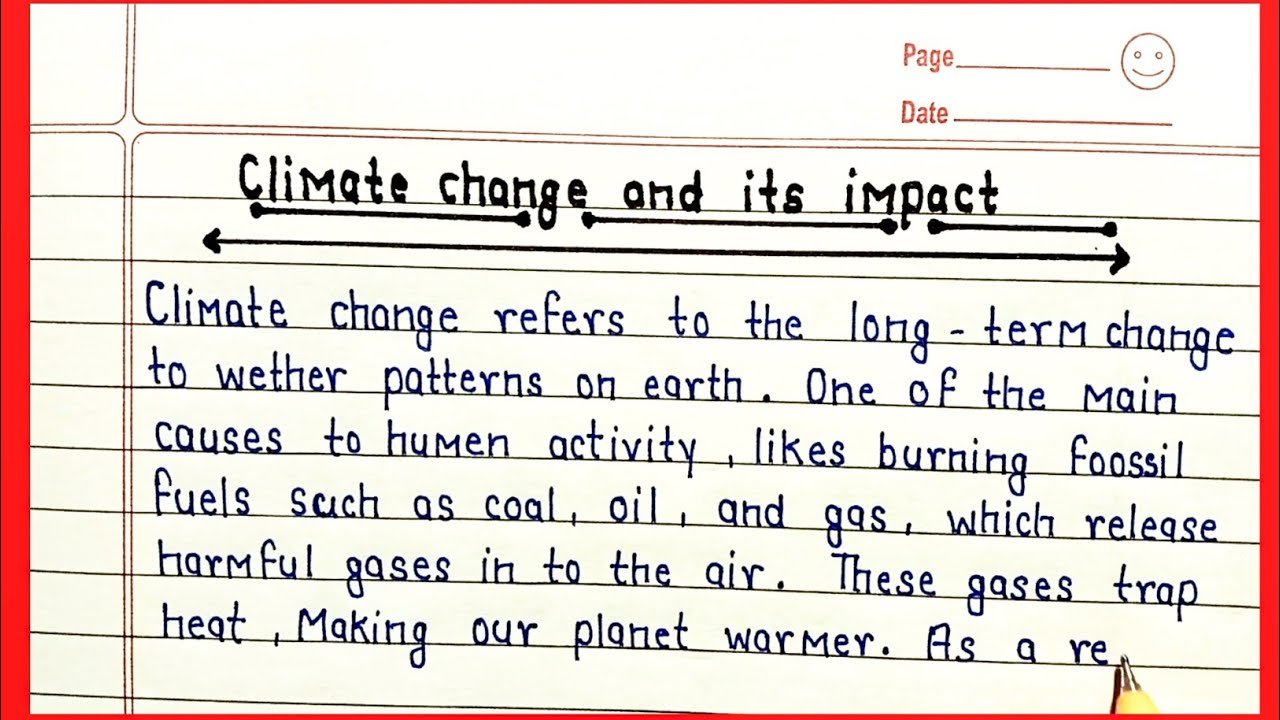 Page
Date
Climate change and its impact
Climate change refers to the long-term change
to wether patterns on earth. One of the main
causes to humen activity, likes burning foossil
fuels such as coal, oil, and gas, which release
harmful gases in to the air. These gases trap
heat, Making our planet warmer. As a re